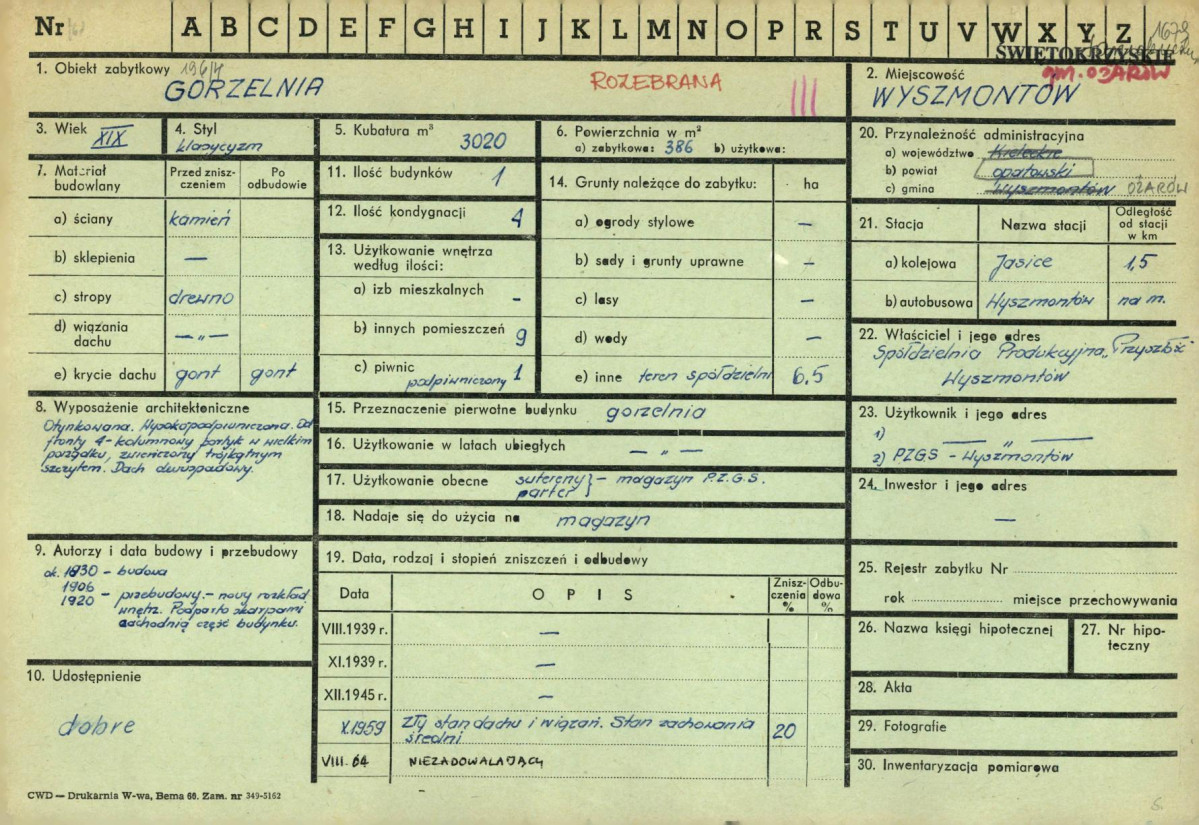 Nr A B C D E F G H I J K L M N O P R S T U V W X Y Z 1678
ŚWIĘTOKRZYSKIE
1. Obiekt zabytkowy 196/4
GORZELNIA ROZEBRANA III
2. Miejscowość gm. OŻARÓW
WYSZMONTÓW
3. Wiek XIX
4. Styl
klasycyzm
5. Kubatura m³ 3020
6. Powierzchnia w m²
a) zabytkowa: 386 b) użytkowa:
7. Materiał budowlany
Przed zniszczeniem
Po odbudowie
a) ściany kamień
b) sklepienia —
c) stropy drewno
d) wiązania dachu —„—
e) krycie dachu gont gont
8. Wyposażenie architektoniczne
Otynkowana. Wysokopodpiwniczona. Od
fronty 4-kolumnowy portyk w wielkim
porządku, zwieńczony trójkątnym
szczytem. Dach dwuspadowy.
9. Autorzy i data budowy i przebudowy
ok. 1830 - budowa
1906
1920 - przebudowy - nowy rozkład
wnętrz. Podparto skarpami
zachodnią część budynku.
10. Udostępnienie
dobre
11. Ilość budynków 1
12. Ilość kondygnacji 4
13. Użytkowanie wnętrza
według ilości:
a) izb mieszkalnych -
b) innych pomieszczeń 9
c) piwnic
podpiwniczony 1
14. Grunty należące do zabytku: ha
a) ogrody stylowe —
b) sady i grunty uprawne —
c) lasy —
d) wody —
e) inne teren spółdzielni 6,5
15. Przeznaczenie pierwotne budynku gorzelnia
16. Użytkowanie w latach ubiegłych — „ —
17. Użytkowanie obecne sutereny } - magazyn P.Z.G.S.
parter
18. Nadaje się do użycia na magazyn
19. Data, rodzaj i stopień zniszczeń i odbudowy
Data OPIS Zniszczenia % Odbudowa %
VIII.1939 r. —
XI.1939 r. —
XII.1945 r. —
X.1959 Zły stan dachu i wiązań. Stan zachowania
średni 20
VIII. 64 NIEZADOWALAJĄCY
20. Przynależność administracyjna
a) województwo Kieleckie
b) powiat opatowski
c) gmina Wyszmontów OŻARÓW
21. Stacja Nazwa stacji Odległość od stacji w km
a) kolejowa Jasice 1,5
b) autobusowa Wyszmontów na m.
22. Właściciel i jego adres
Spółdzielnia Produkcyjna „Przyszłość
Wyszmontów
23. Użytkownik i jego adres
1) —— „ ——
2) PZGS - Wyszmontów
24. Inwestor i jego adres
—
25. Rejestr zabytku Nr
rok miejsce przechowywania
26. Nazwa księgi hipotecznej
27. Nr hipoteczny
28. Akta
29. Fotografie
30. Inwentaryzacja pomiarowa
CWD — Drukarnia W-wa, Bema 60. Zam. nr 349-5162